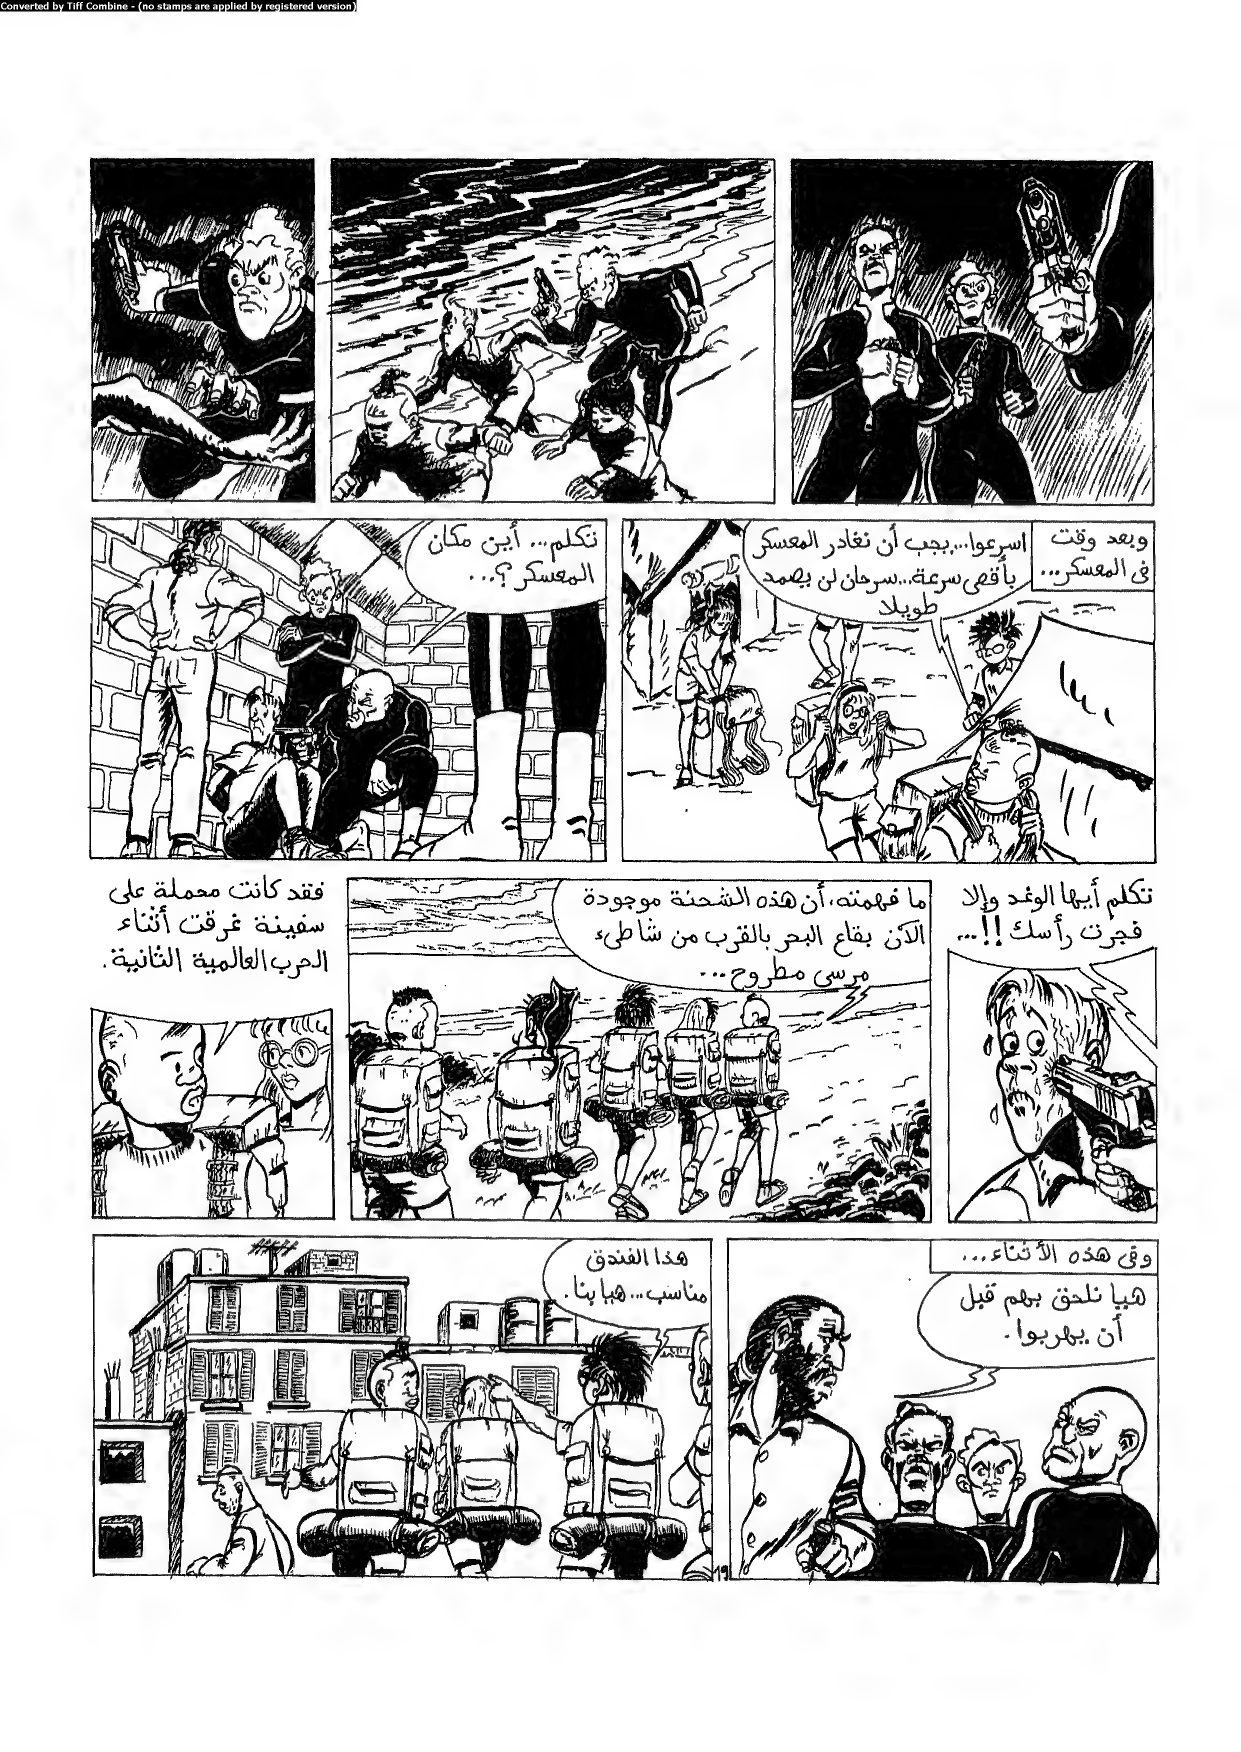 Converted by Tiff Combine - (no stamps are applied by registered version)
وبعد وقت
فى المعسكر...
اسرعوا... يجب أن نغادر المعسكر
بأقصى سرعة... سرحان لن يصمد
طويلا
تكلم... أين مكان
المعسكر ؟...
تكلم أيها الوغد وإلا
فجرت رأسك !!...
ما فهمته، أن هذه الشحنة موجودة
الآن بقاع البحر بالقرب من شاطىء
مرسى مطروح...
فقد كانت محملة على
سفينة غرقت أثناء
الحرب العالمية الثانية.
وفى هذه الأثناء...
هيا نلحق بهم قبل
أن يهربوا.
هذا الفندق
مناسب... هيا بنا.
19